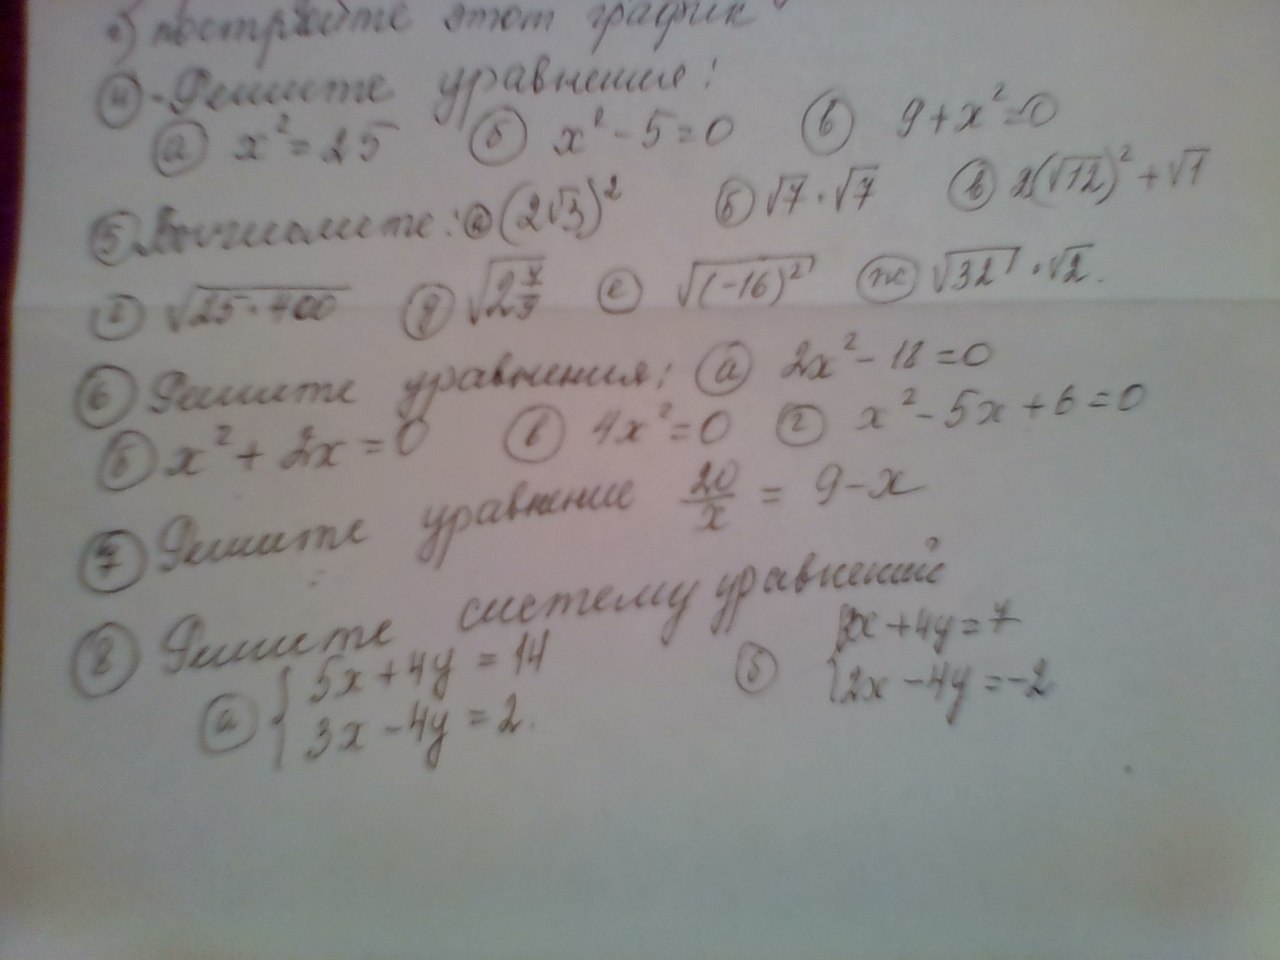 б) постройте этот график
④ Решите уравнения:
ⓐ x² = 25 ⓑ x² - 5 = 0 ⓥ 9 + x² = 0
⑤ Вычислите: ⓐ (2√3)² ⓑ √7 · √7 ⓥ 2(√12)² + √1
ⓖ √25·400 ⓓ √2 7/9 ⓔ √(-16)² ⓩ √32 · √2.
⑥ Решите уравнения: ⓐ 2x² - 18 = 0
ⓑ x² + 2x = 0 ⓥ 4x² = 0 ⓖ x² - 5x + 6 = 0
⑦ Решите уравнение 20/x = 9 - x
⑧ Решите систему уравнений
ⓐ { 5x + 4y = 14 ⓑ { 3x + 4y = 7
3x - 4y = 2. 2x - 4y = -2